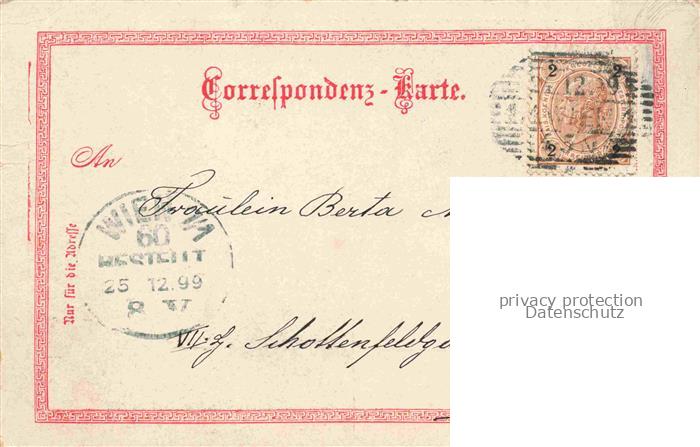 Correspondenz-Karte.
2 2
12. 9
2 2
An
Fräulein Berta
WIEN
60
BESTELLT
25 12.99
8 V
Nur für die Adresse
VII. Z. Schottenfeldg
privacy protection
Datenschutz